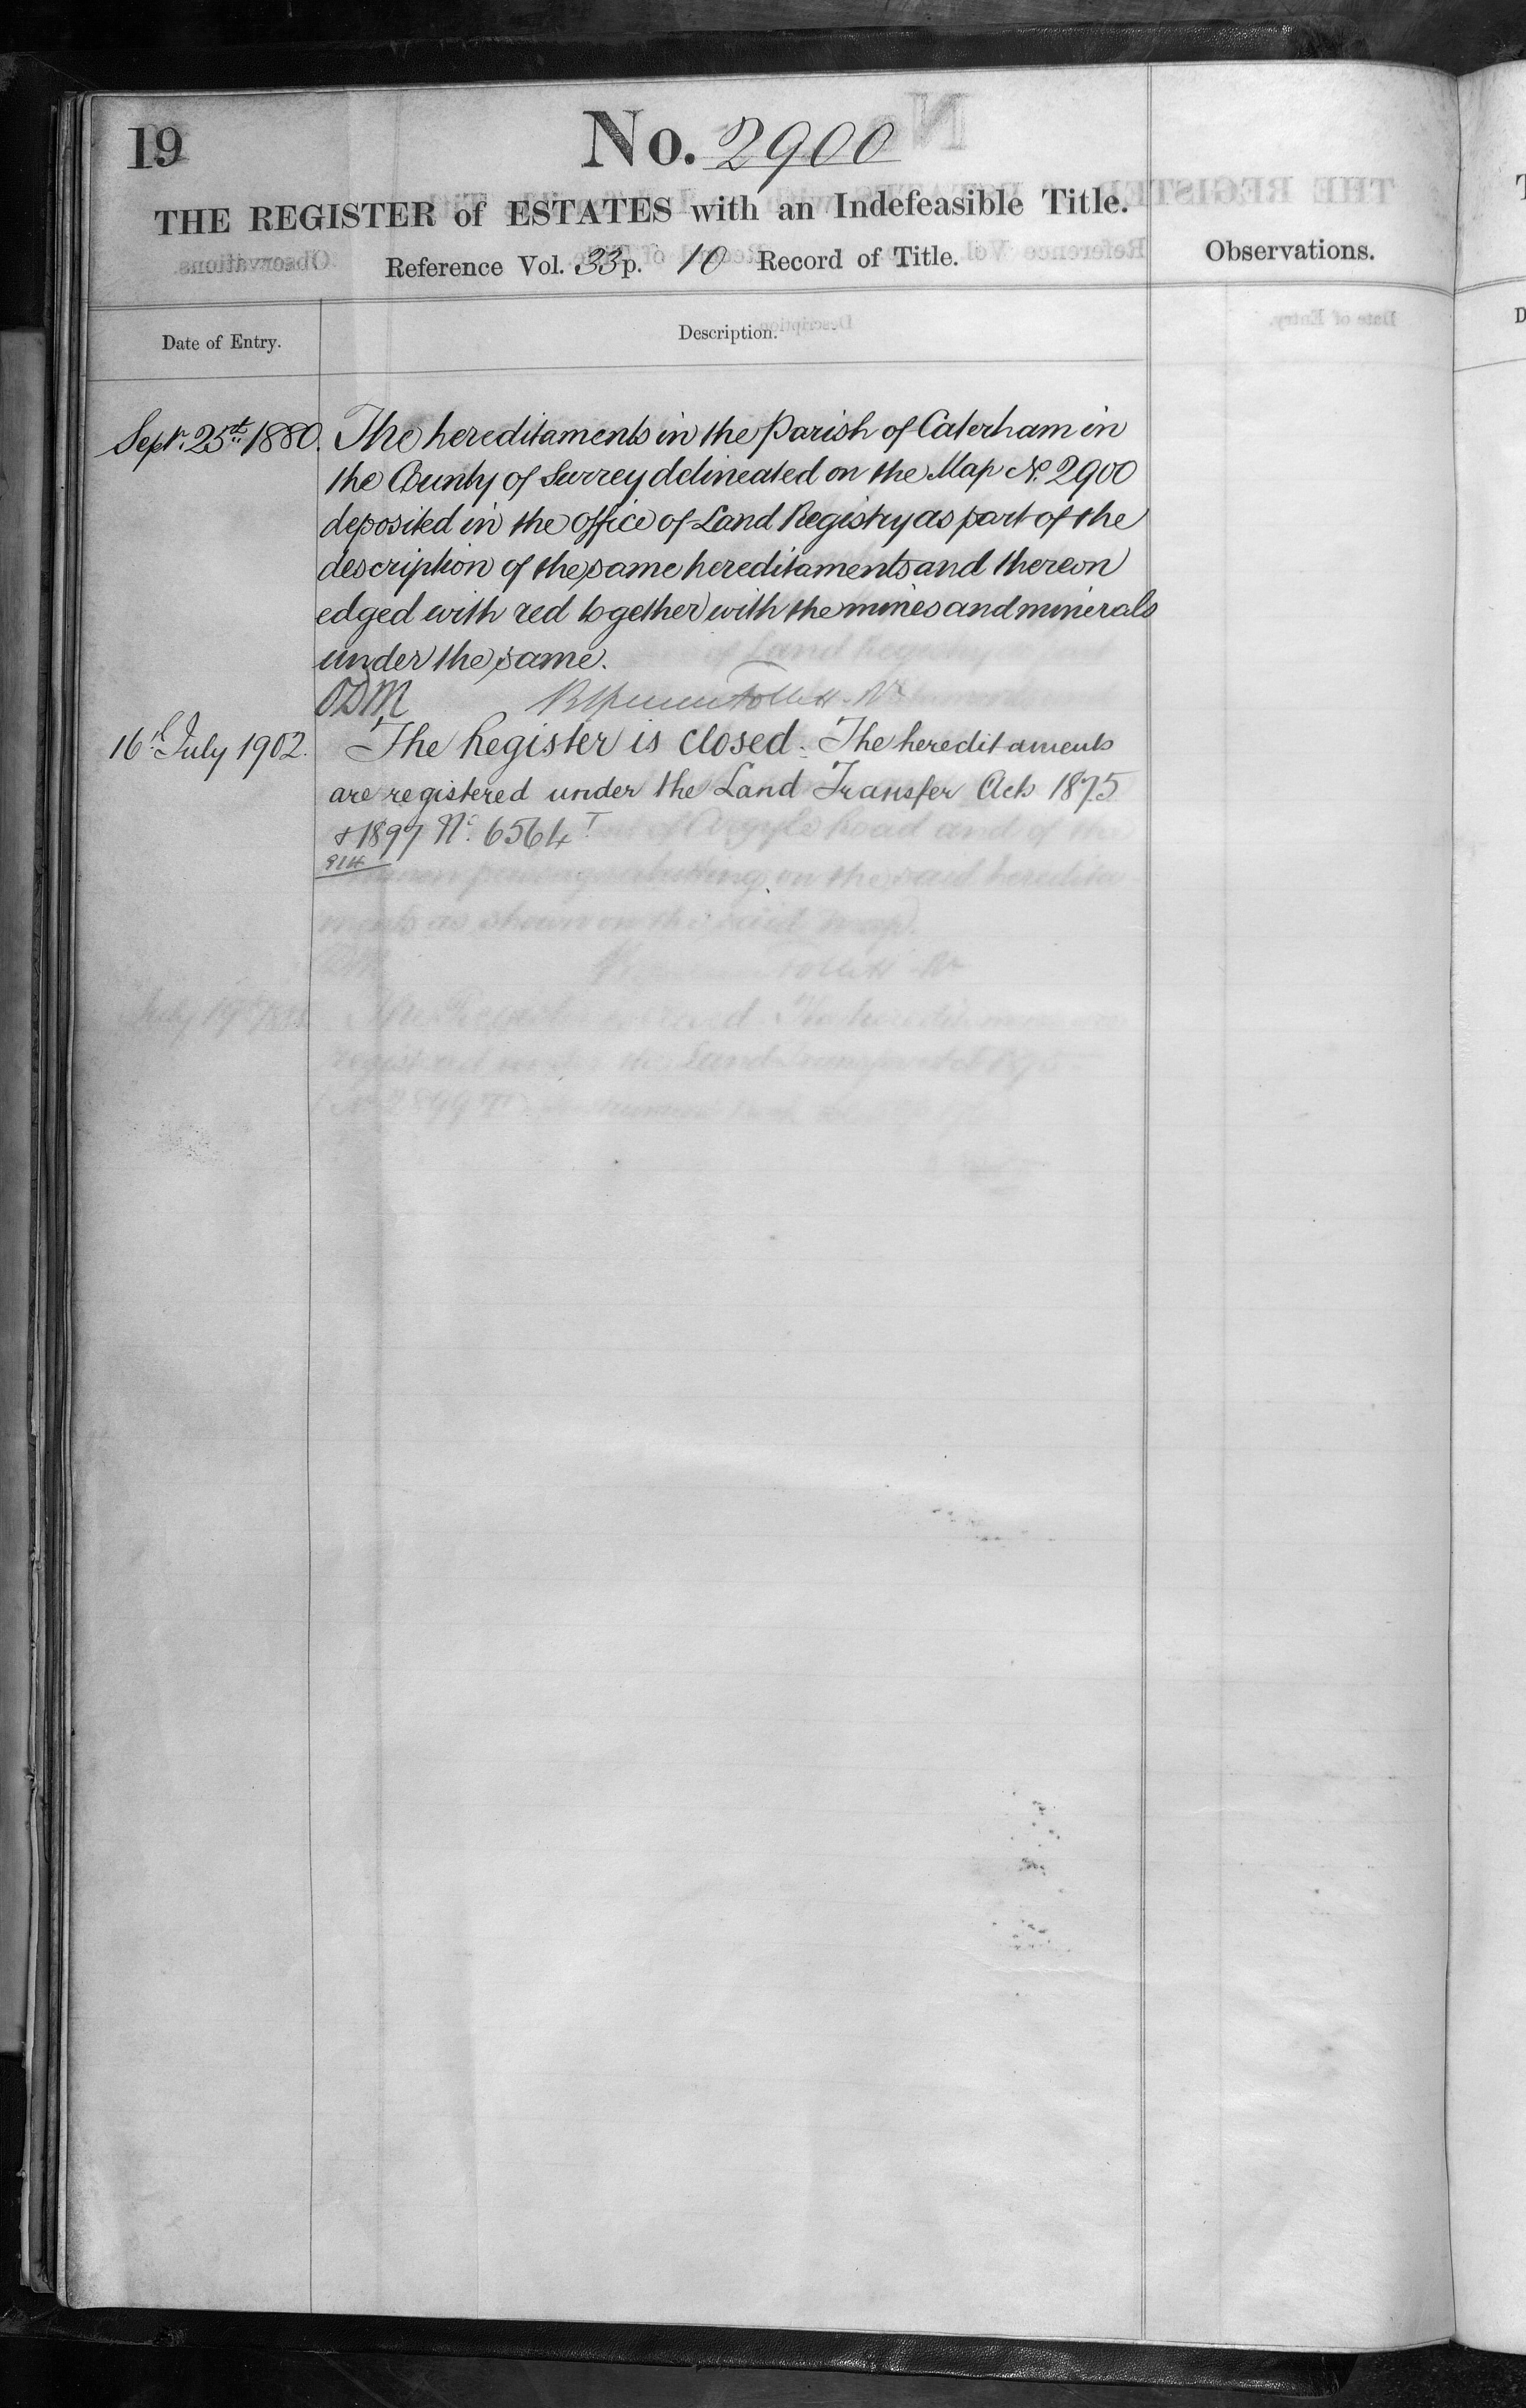 19
No. 2900
THE REGISTER of ESTATES with an Indefeasible Title.
Reference Vol. 33 p. 10 Record of Title.
Observations.
Date of Entry.
Description.
Septr. 25th 1880. The hereditaments in the Parish of Caterham in
the County of Surrey delineated on the Map No. 2900
deposited in the Office of Land Registry as part of the
description of the same hereditaments and thereon
edged with red together with the mines and minerals
under the same.
ODM Follett Rr
16th July 1902. The Register is closed. The hereditaments
are registered under the Land Transfer Acts 1875
& 1897 No. 6564 T